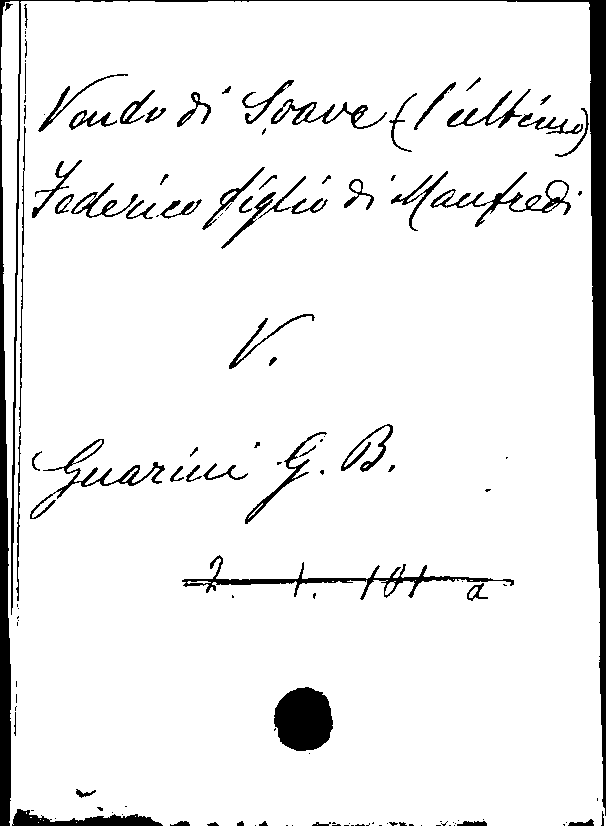 Vento di Soave (l'ultimo)
Federico figlio di Manfredi
V.
Guarini G. B.
2. 1. 101 a